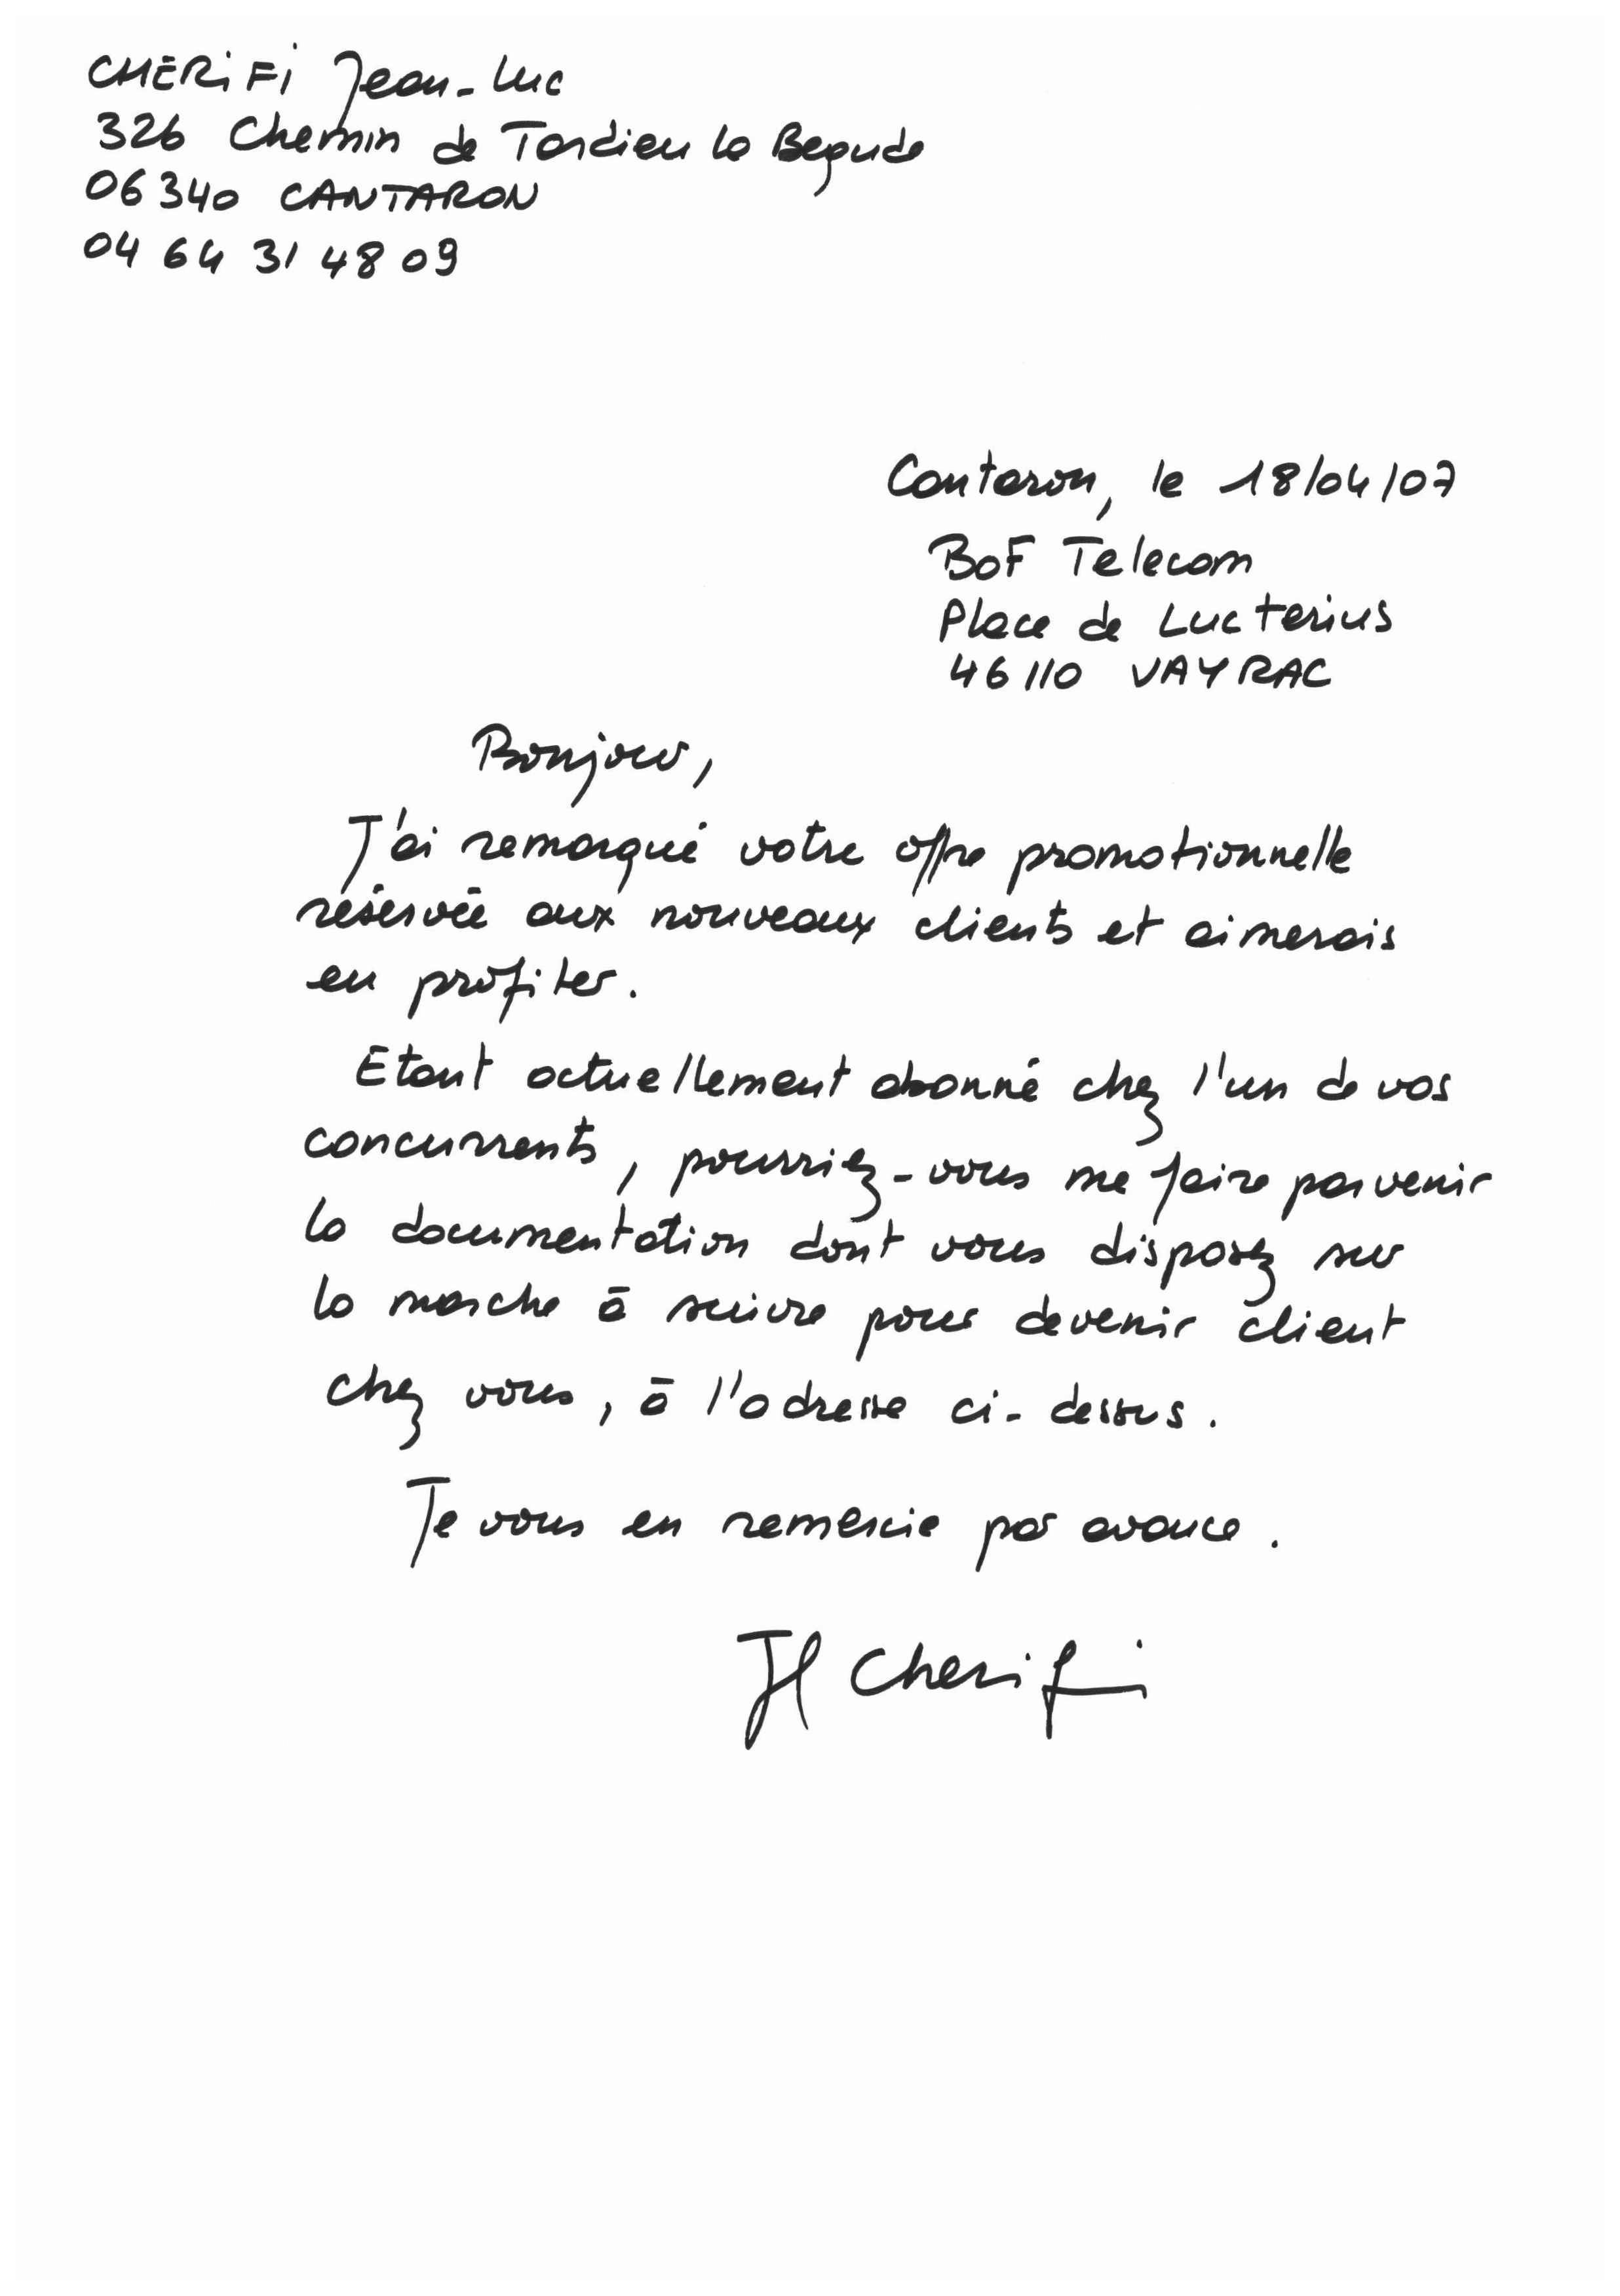 CHERIFI Jean-Luc
326 Chemin de Tardieu la Begude
06340 CANTARON
04 64 31 48 09
Cantaron, le 18/04/07
BOF Telecom
Place de Lucterius
46110 VAYRAC
Bonjour,
J'ai remarqué votre offre promotionnelle
réservée aux nouveaux clients et aimerais
en profiter.
Etant actuellement abonné chez l'un de vos
concurrents, pourriez-vous me faire parvenir
la documentation dont vous disposez sur
la marche à suivre pour devenir client
chez vous, à l'adresse ci-dessus.
Je vous en remercie par avance.
Jl Cherifi